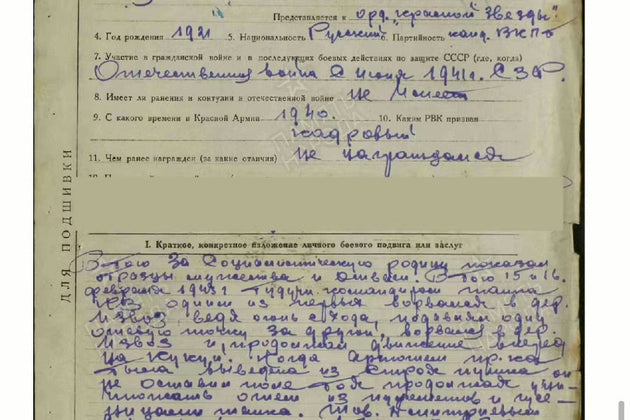 Представляется к орд. "Красной Звезды"
4. Год рождения 1921 5. Национальность Русский 6. Партийность канд. ВКПб
7. Участие в гражданской войне и в последующих боевых действиях по защите СССР (где, когда)
Отечественная война С июня 1941г. С.З.Ф.
8. Имеет ли ранения и контузии в отечественной войне не имеет
9. С какого времени в Красной Армии 1940. 10. Каким РВК призван
кадровый
11. Чем ранее награжден (за какие отличия) не награждался
ДЛЯ ПОДШИВКИ
I. Краткое, конкретное изложение личного боевого подвига или заслуг
В бою за Социалистическую родину показал
образцы мужества и отваги. В бою 15 и 16.
февраля 1943г будучи командиром танка
КВ одним из первых ворвался в дер.
Извоз ведя огонь с хода, подавляя одну
огневую точку за другой, ворвался в дер.
Извоз и продолжал движение вперед
на Кукуй. Когда
была выведена из строя пушка он
не оставил поле боя продолжая уни-
чтожать огнем из пулеметов и гусе-
ницами танка. Тов.